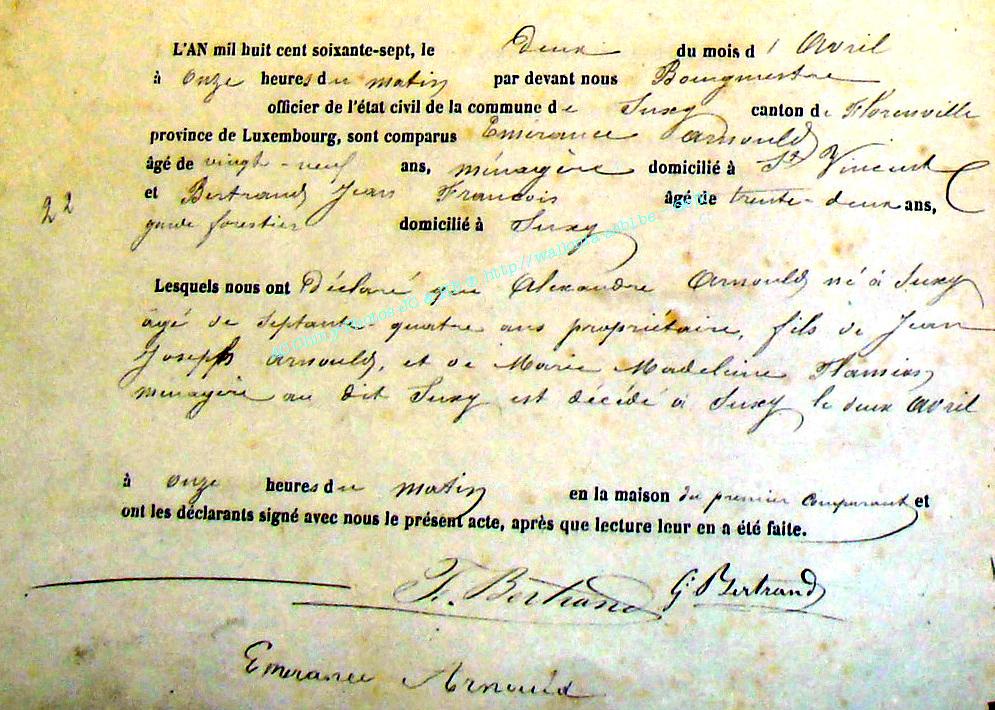 L'AN mil huit cent soixante-sept, le deux du mois d' Avril
à onze heures du matin par devant nous Bourgmestre
officier de l'état civil de la commune de Suxy canton de Florenville
province de Luxembourg, sont comparus Emérance Arnould
âgé de vingt-neuf ans, ménagère domicilié à St Vincent
22
et Bertrand Jean Francois âgé de trente-deux ans,
garde forestier domicilié à Suxy
Lesquels nous ont Déclaré que Alexandre Arnould né à Suxy
âgé de septante-quatre ans propriétaire, fils de Jean
Joseph Arnould, et de Marie Madeleine
ménagère au dit Suxy est décédé à Suxy le deux Avril
à onze heures du matin en la maison du premier comparant et
ont les déclarants signé avec nous le présent acte, après que lecture leur en a été faite.
F. Bertrand G. Bertrand
Emerance Arnould